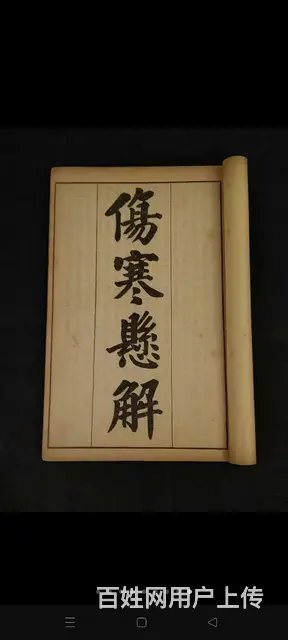 傷寒懸解
百姓网用户上传